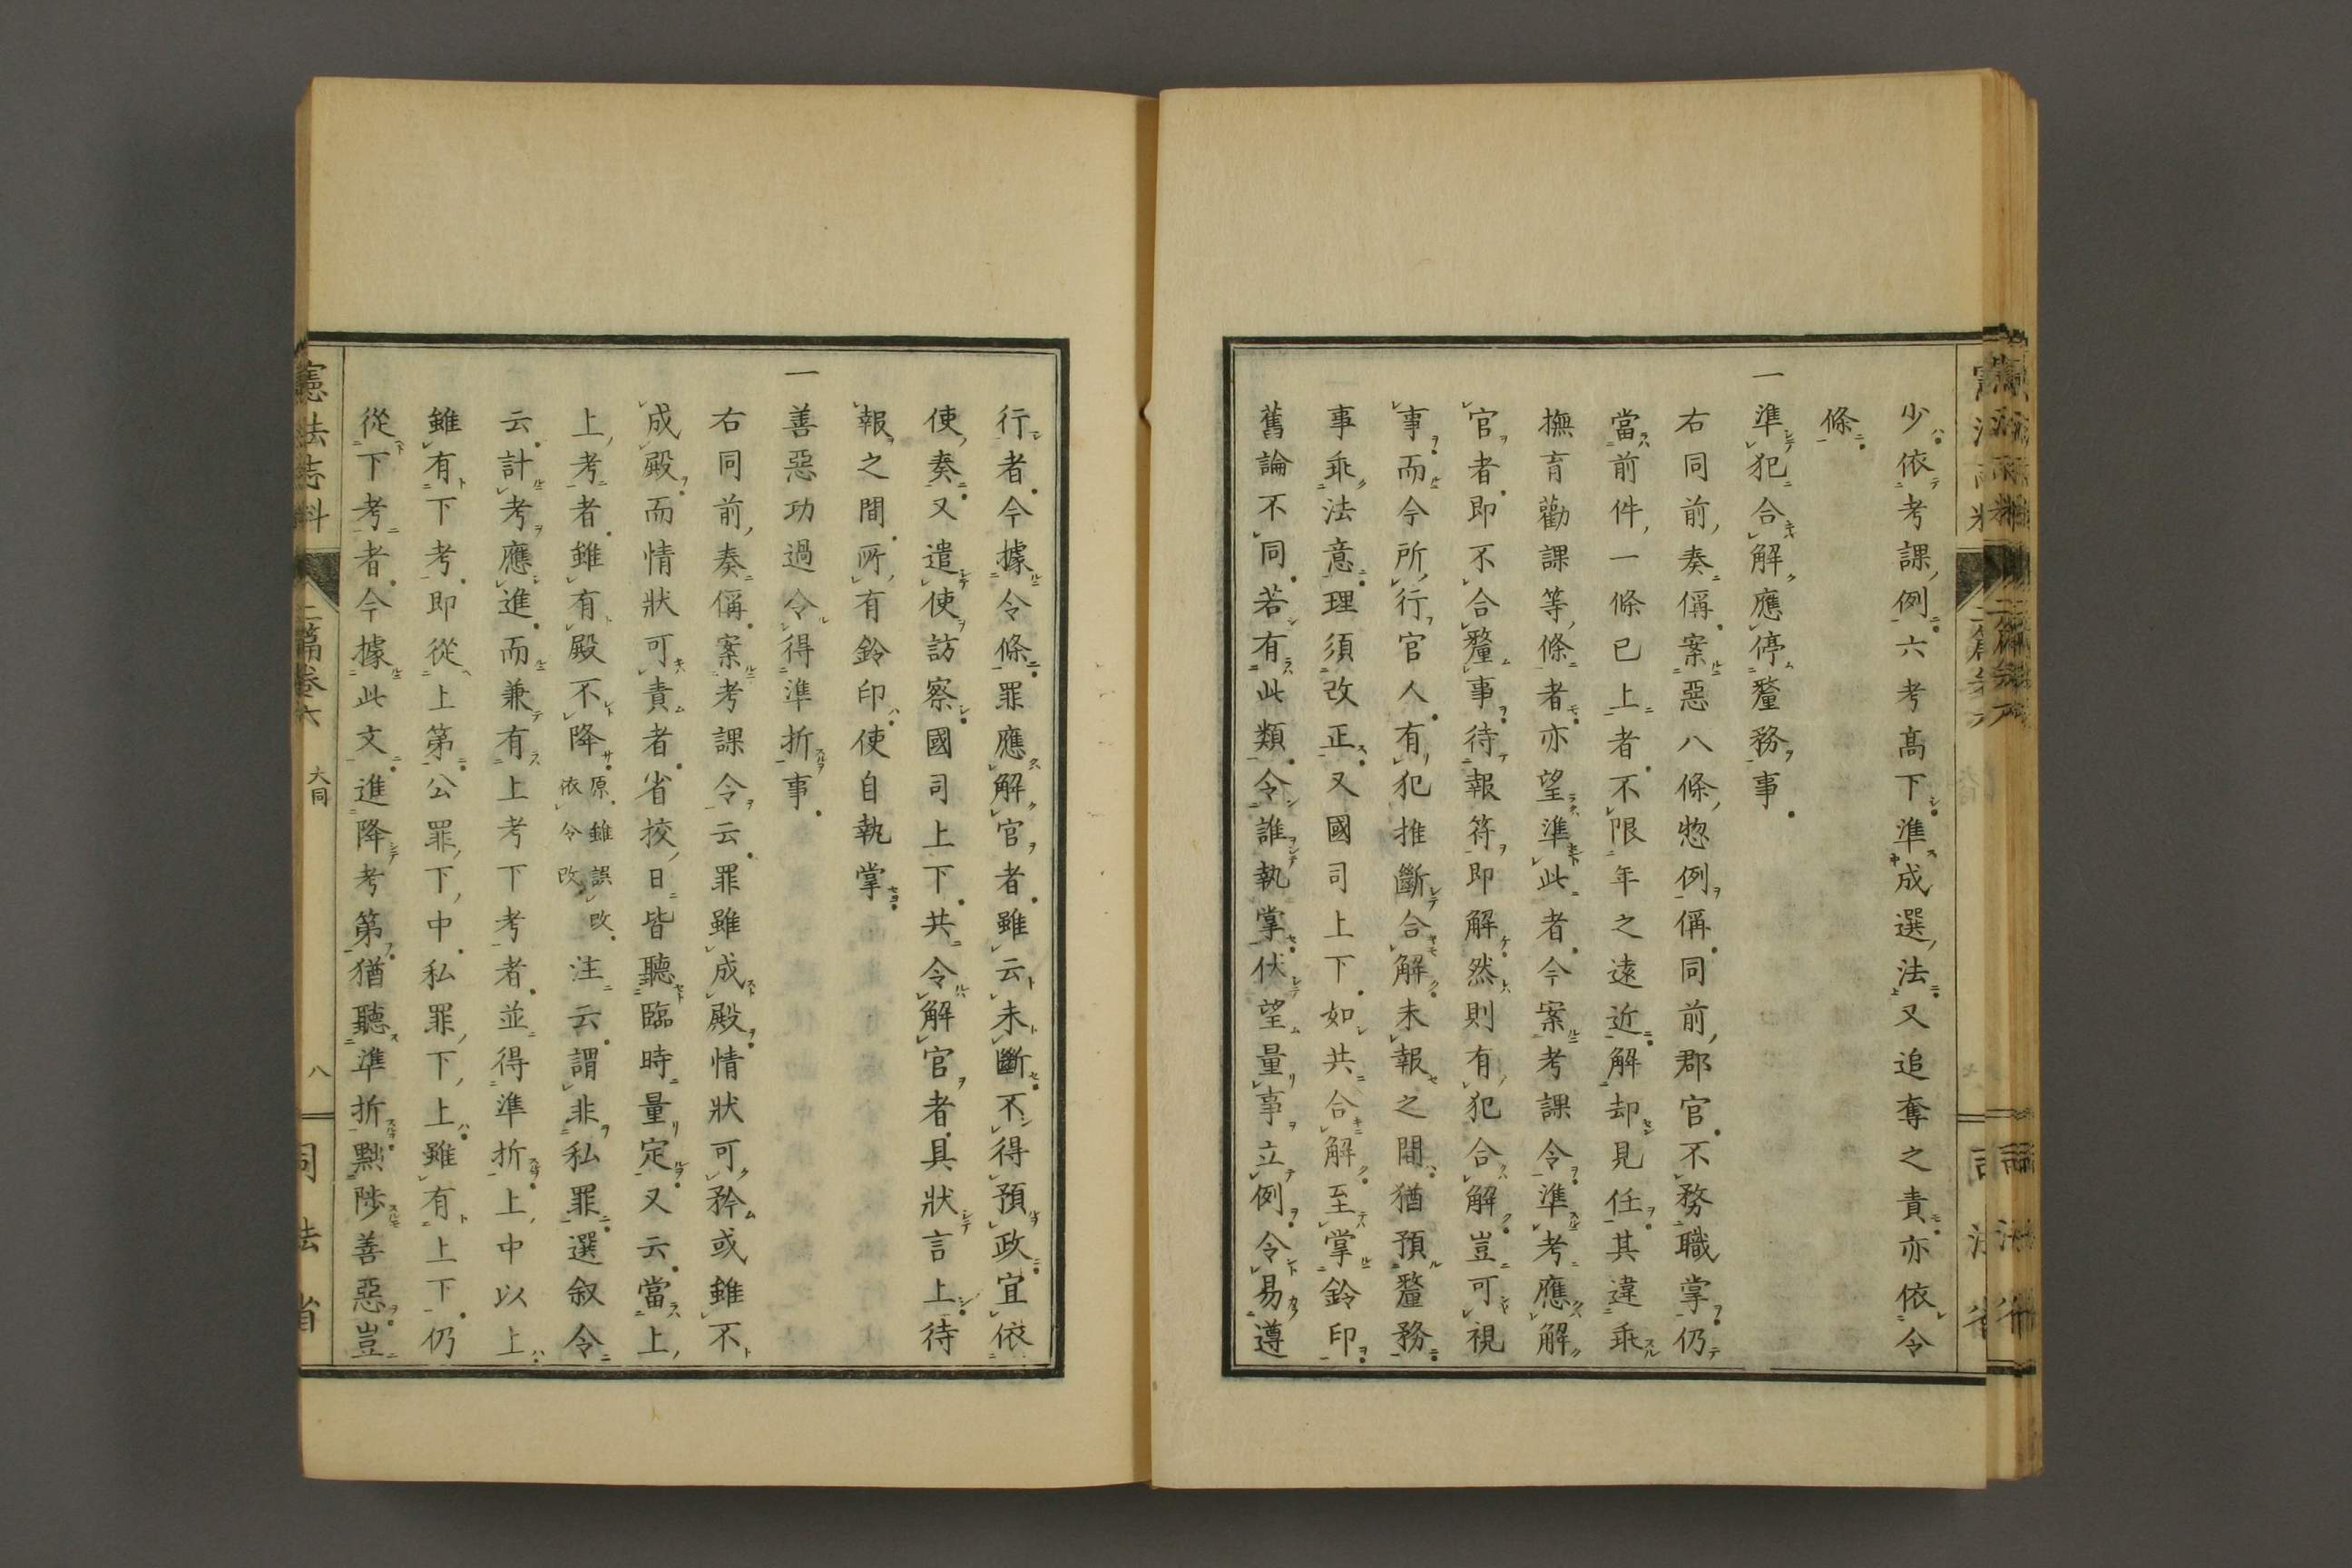 少依考課例六考高下準成選法又追奪之責亦依令
條
一準犯合解應停釐務事
右同前奏偁案惡八條惣例偁同前郡官不務職掌仍
當前件一條已上者不限年之遠近解却見任其違乖
撫育勸課等條者亦望準此者今案考課令準考應解
官者即不合釐事待報符即解然則有犯合解豈可視
事而今所行官人有犯推斷合解未報之間猶預釐務
事乖法意理須改正又國司上下如共合解至掌鈴印
舊論不同若有此類令誰執掌伏望量事立例令易遵
行者今據令條罪應解官者雖云未斷不得預政宜依
使奏又遣使訪察國司上下共令解官者具狀言上待
報之間所有鈴印使自執掌
一善惡功過令得準折事
右同前奏偁案考課令云罪雖成殿情狀可矜或雖不
成殿而情狀可責者省挍日皆聽臨時量定又云當上
上考者雖有殿不降原雖誤改依令改注云謂非私罪選叙令
云計考應進而兼有上考下考者並得準折上中以上
雖有下考即從上第公罪下中私罪下上雖有上下仍
從下考者今據此文進降考第猶聽準折黜陟善惡豈
憲法志料
二篇卷六
大同
八
司法省